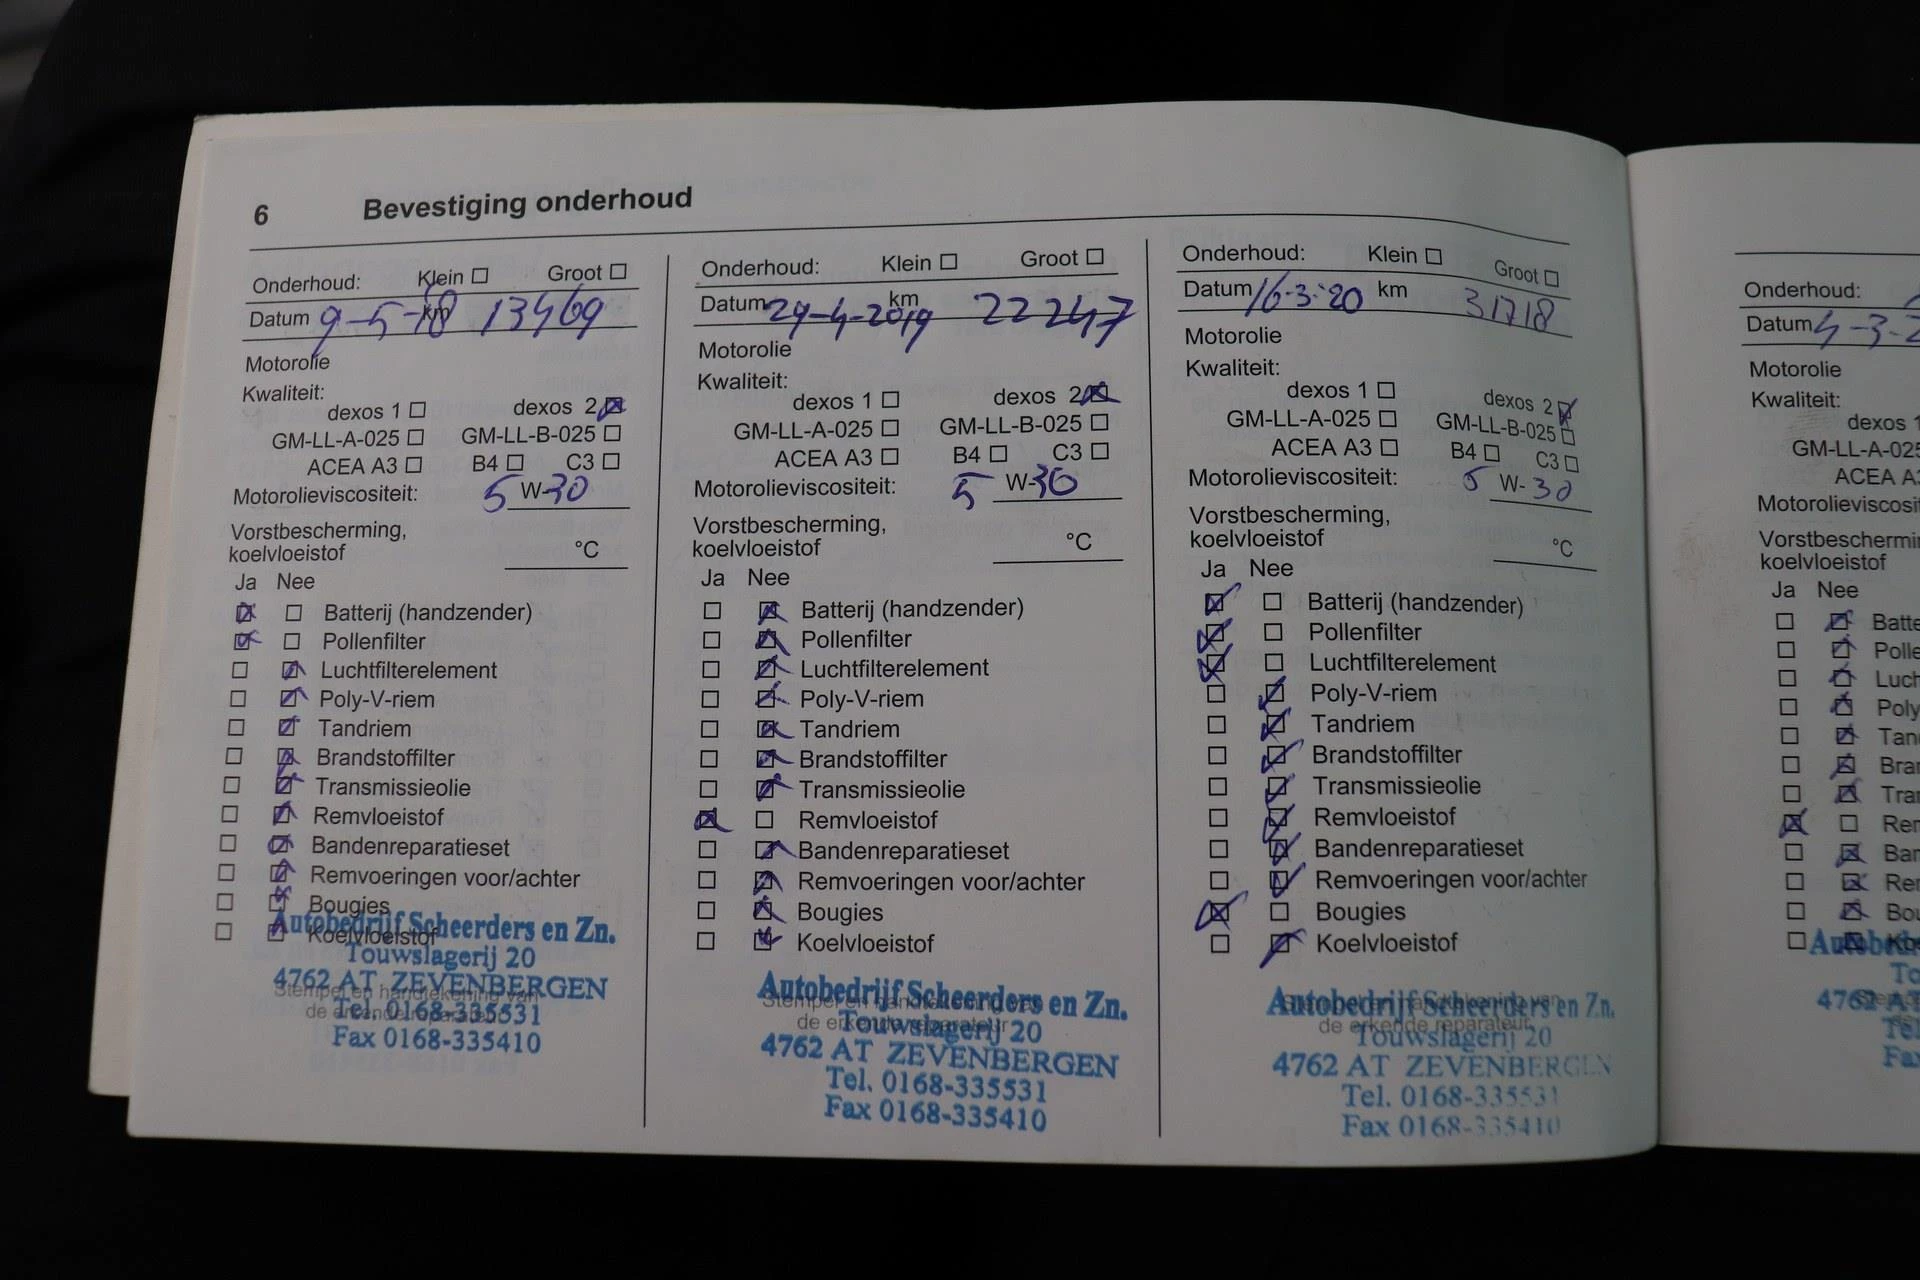 6 Bevestiging onderhoud
Onderhoud: Klein Groot
Datum 9-5-18 km 13469
Motorolie
Kwaliteit:
dexos 1 dexos 2
GM-LL-A-025 GM-LL-B-025
ACEA A3 B4 C3
Motorolieviscositeit: 5 W-30
Vorstbescherming,
koelvloeistof °C
Ja Nee
Batterij (handzender)
Pollenfilter
Luchtfilterelement
Poly-V-riem
Tandriem
Brandstoffilter
Transmissieolie
Remvloeistof
Bandenreparatieset
Remvoeringen voor/achter
Bougies
Koelvloeistof
Autobedrijf Scheerders en Zn.
Touwslagerij 20
4762 AT ZEVENBERGEN
Stempel en handtekening van
de erkende reparateur
Tel. 0168-335531
Fax 0168-335410
Onderhoud: Klein Groot
Datum 29-4-2019 km 22247
Motorolie
Kwaliteit:
dexos 1 dexos 2
GM-LL-A-025 GM-LL-B-025
ACEA A3 B4 C3
Motorolieviscositeit: 5 W-30
Vorstbescherming,
koelvloeistof °C
Ja Nee
Batterij (handzender)
Pollenfilter
Luchtfilterelement
Poly-V-riem
Tandriem
Brandstoffilter
Transmissieolie
Remvloeistof
Bandenreparatieset
Remvoeringen voor/achter
Bougies
Koelvloeistof
Autobedrijf Scheerders en Zn.
Stempel en handtekening van
de erkende reparateur
Touwslagerij 20
4762 AT ZEVENBERGEN
Tel. 0168-335531
Fax 0168-335410
Onderhoud: Klein Groot
Datum 16-3-'20 km 31718
Motorolie
Kwaliteit:
dexos 1 dexos 2
GM-LL-A-025 GM-LL-B-025
ACEA A3 B4 C3
Motorolieviscositeit: 5 W-30
Vorstbescherming,
koelvloeistof °C
Ja Nee
Batterij (handzender)
Pollenfilter
Luchtfilterelement
Poly-V-riem
Tandriem
Brandstoffilter
Transmissieolie
Remvloeistof
Bandenreparatieset
Remvoeringen voor/achter
Bougies
Koelvloeistof
Autobedrijf Scheerders en Zn.
Stempel en handtekening van
de erkende reparateur
Touwslagerij 20
4762 AT ZEVENBERGEN
Tel. 0168-335531
Fax 0168-335410
Onderhoud:
Datum
Motorolie
Kwaliteit:
dexos 1
GM-LL-A-025
ACEA A3
Motorolieviscosit
Vorstbeschermi
koelvloeistof
Ja Nee
Batte
Polle
Luch
Poly
Tan
Bra
Tra
Rem
Ban
Rer
Bou
Ko
Autobed
To
4762 A
Te
Fax